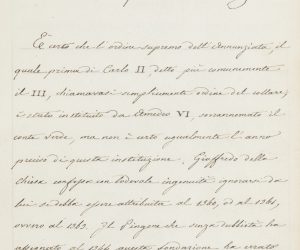 È certo che l'ordine supremo dell'Annunziata, il
quale prima di Carlo II, detto più comunemente
il III, chiamavasi semplicemente ordine del collare,
è stato instituito da Amedeo VI, sorannomato il
conte verde, ma non è certo ugualmente l'anno
preciso di questa instituzione. Gioffredo della
chiesa confessa con lodevole ingenuità ignorarsi da
lui se debba essere attribuita al 1360, od al 1361,
ovvero al 1363. Il Pingone che senza dubbietà ha
assegnato al 1344 questa fondazione ha errato